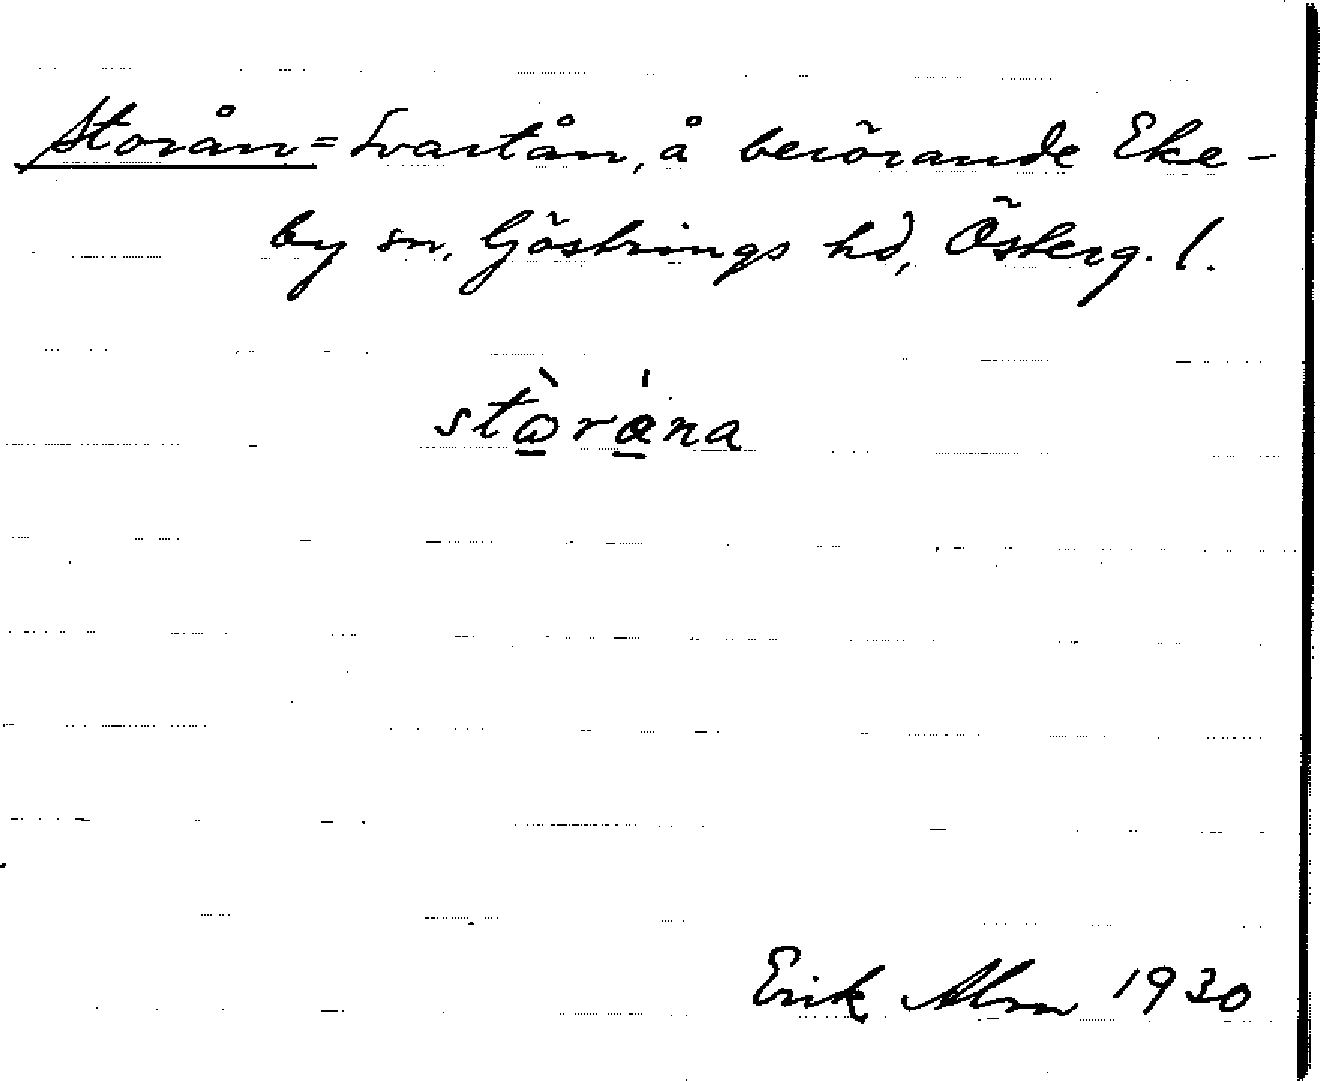 Storån = Svartån, å berörande Eke-
by sn, Göstrings hd, Österg. l.
stò̱rá̱na
Erik Alm 1930